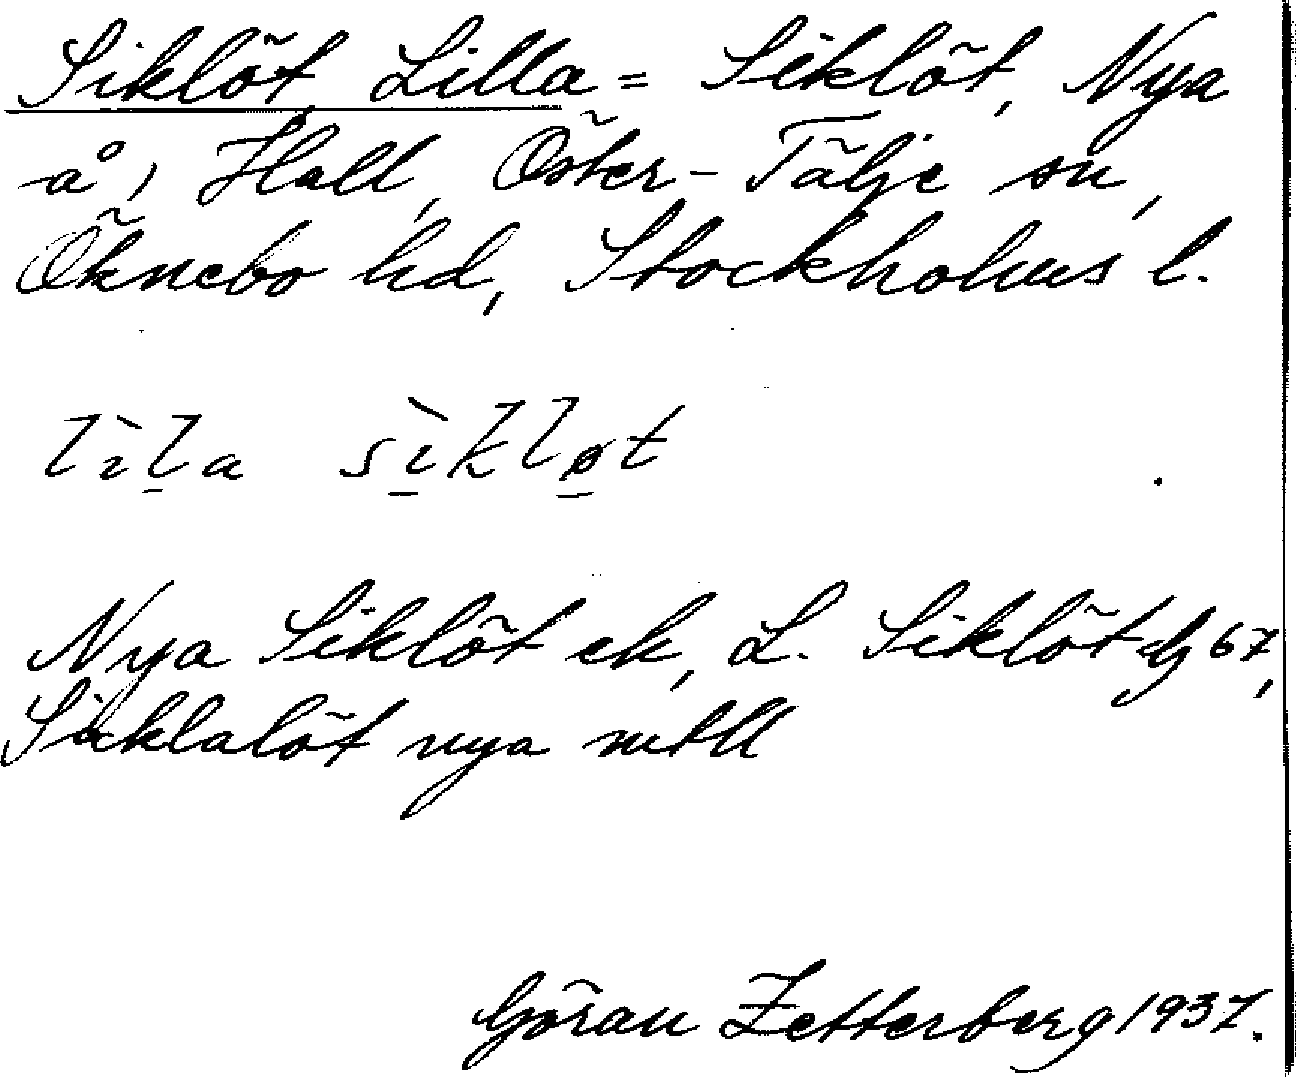 Siklöt, Lilla = Siklöt, Nya
å, Hall, Öster-Tälje sn,
Öknebo hd, Stockholms l.
lìla sìkløt
Nya Siklöt ek, L. Siklöt Gg 67,
Sicklalöt nya mtll
Göran Zetterberg 1937.